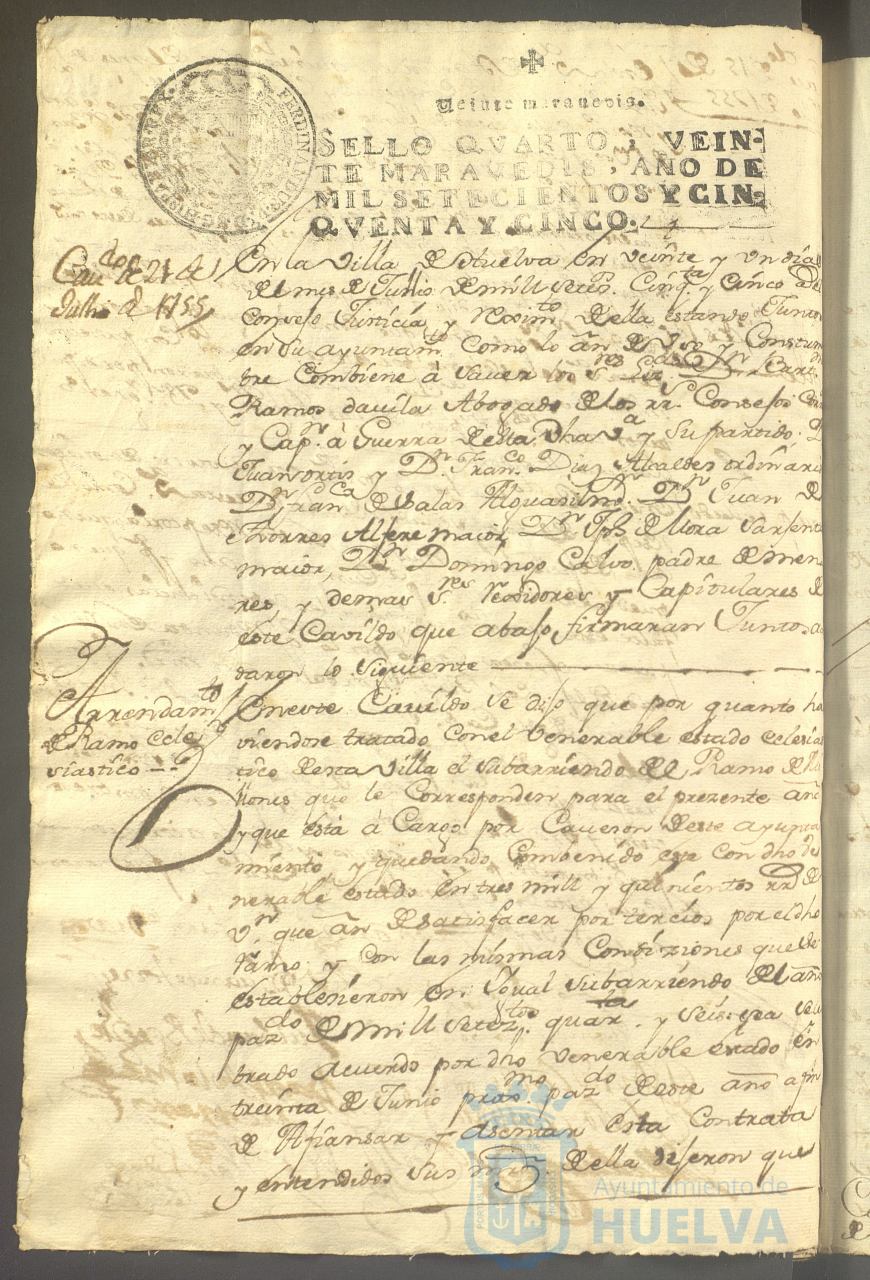 Veinte maravedis.
SELLO QVARTO, VEIN-
TE MARAVEDIS, AÑO DE
MIL SETECIENTOS Y CIN-
QVENTA Y CINCO.
FERDINANDUS
Cavdo de 21 de
Jullio de 1755
En la Villa de Huelva en veinte y un dia
del mes de Jullio de mill setezs. Cinqta y Cinco el
Consejo Justicia, y reximto della estando Juntos
en su ayuntamto. Como lo an de Uso y Constum
bre Combiene à saver los Sres
Ramos davila Abogado de los rrs. Consejos
y Capn. à Guerra desta dha Va y su partido. D
Juan ortis y Dn. Franco Diaz Alcaldes ordinario
Dn fran de salas Alguasil Dn Juan de
Thorres Alfere maior, Dn Jph de Mora sarjento
maior, Dn Domingo Calvo padre de meno
res, y demas Sres Rexidores y Capitulares de
este Cavildo que abajo firmaran Juntos a
daron lo siguiente
Arrendamto
de Ramo Ecle
siastico
En este Cavildo se dijo que por quanto ha
viendose tratado con el Venerable estado eclesias
tico desta villa el subarriendo del Ramo de Mi
llones que le Corresponden para el prezente año
y que està à Cargo por Caveson deste ayunta
miento, y quedando Combenido este con dho Ve
nerable estado en tres mill y quinientos rrs de
vn que an de satisfacer por tercios por el dho
ramo y con las mismas Condiziones que se
establesieron en Ygual subarriendo del año
pazdo de mill setezs quarta y seis sea sele
brado acuerdo por dho Venerable estado en
treinta de Junio proxmo pazdo deste año a fin
de Afiansar y asentar esta Contrata
y entendidos sus mrds della dijeron que
Ayuntamiento de
HUELVA